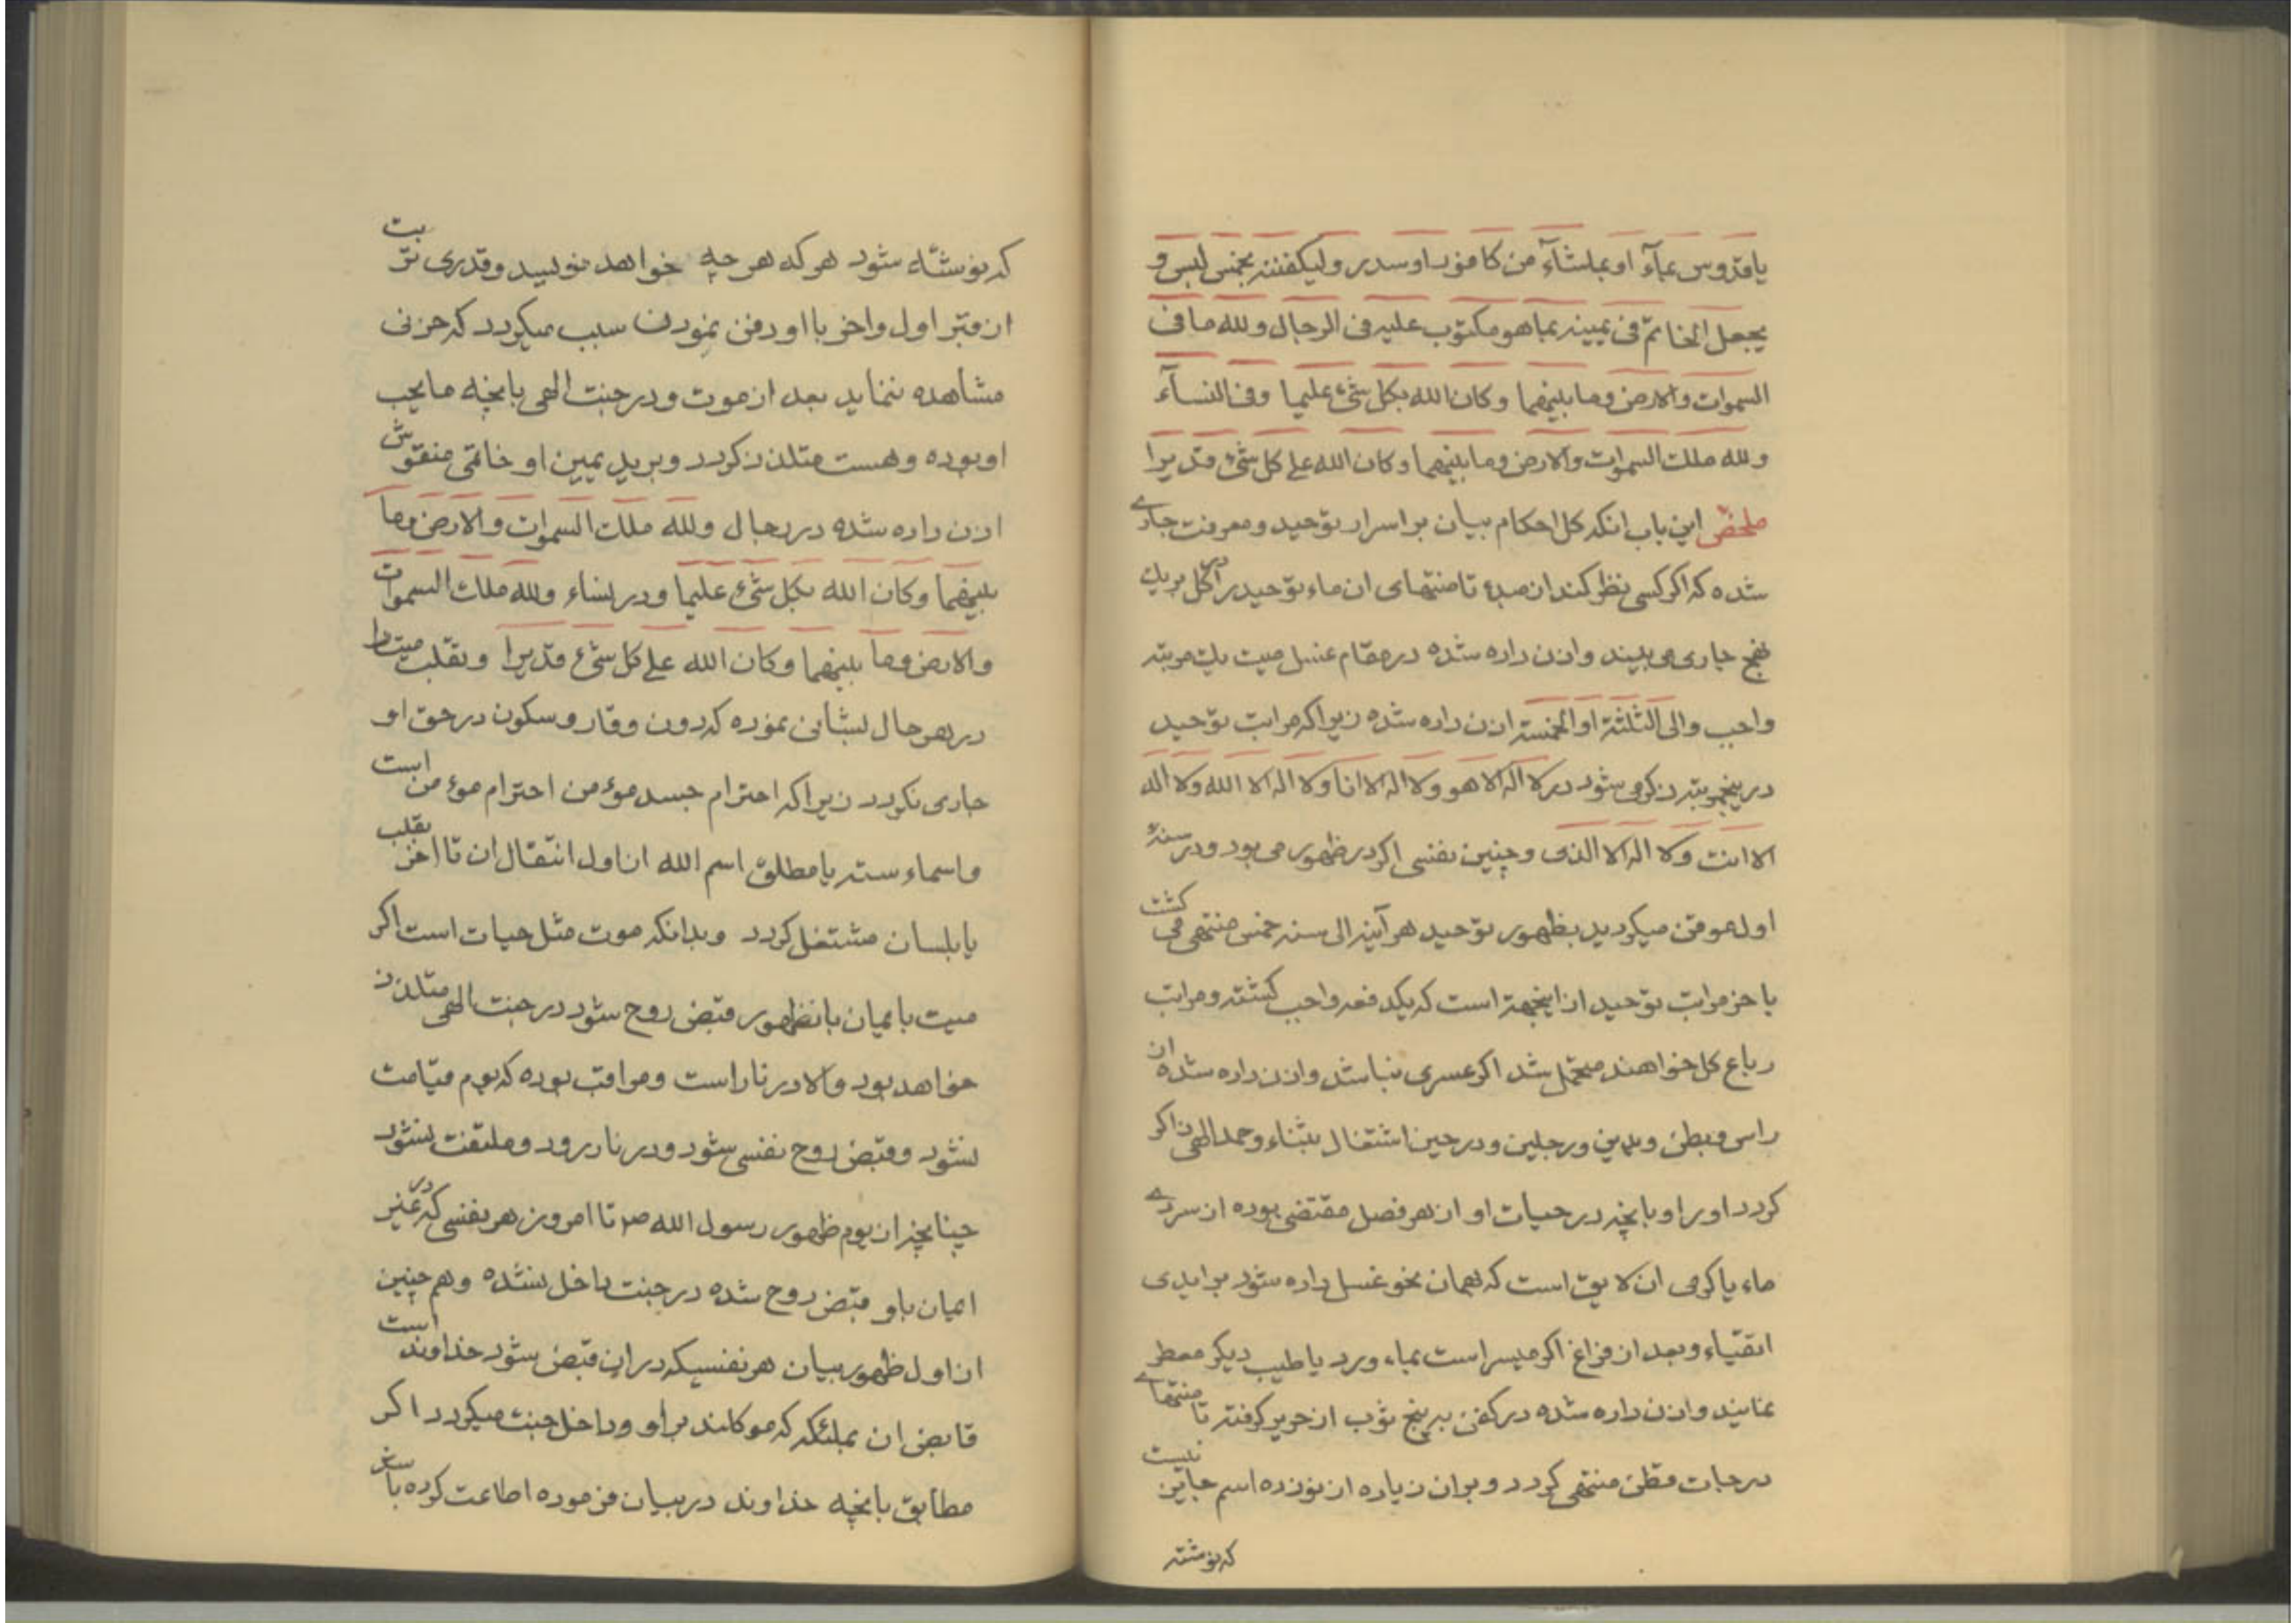 یا قدوس بمآء او بماشآء من کافور او سدر ولیکفننه بخمس لبس و
یجعل الخاتم فی یمینه بما هو مکتوب علیه فی الرجال ولله ما فی
السموات والارض وما بینهما وکان الله بکل شیء علیما وفی النسآء
ولله ملک السموات والارض وما بینهما وکان الله علی کل شیء قدیرا
ملخص این باب انکه کل احکام بیان بر اسرار توحید ومعرفت جاری
شده که اکر کسی نظر کند از مبدء تا منتهای ان ماء توحید را در کل بریک
نهج جاری می بیند واذن داده شده در مقام غسل میت یک مرتبه
واجب والی الثلثة او الخمسة اذن داده شده زیرا که مراتب توحید
در پنجمرتبه ذکر می شود در لا اله الا هو ولا اله الا انا ولا اله الا الله ولا اله
الا انت ولا اله الا الذی وچنین نفسی اکر در ظهور می بود ودر سنهٔ
اول موقن میکردید بظهور توحید هر آینه الی سنه خمس منتهی می کشت
باخر مراتب توحید از اینجهة است که یکدفعه واجب کشته ومراتب
رباع کل خواهند متحمل شد اکر عسری نباشد واذن داده شده ان
راس وبطن ویدین ورجلین ودر حین اشتغال بثناء وحمد الهی ذاکر
کردد او را وبانچه در حیات او از هر فصل مقتضی بوده از سردی
ماء یا کرمی ان لایق است که بهمان نحو غسل داده شود بر ایدی
اتقیاء وبعد از فراغ اکر میسر است بماء ورد یا طیب دیکر معطر
نمایند واذن داده شده در کفن به پنج ثوب از حریر کرفته تا منتهای
درجات قطن منتهی کردد وبر ان زیاده از نوزده اسم جایز نیست
که نوشته
که نوشته شود هر که هر چه خواهد نویسد وقدری تربت
از قبر اول واخر با او دفن نمودن سبب میکردد که حزنی
مشاهده ننماید بعد از موت ودر جنت الهی بانچه ما یحب
او بوده وهست متلذذ کردد وبر ید یمین او خاتمی منقوش
اذن داده شده در رجال ولله ملک السموات والارض وما
بینهما وکان الله بکل شیء علیما ودر نساء ولله ملک السموات
والارض وما بینهما وکان الله علی کل شیء قدیرا وتقلب میت را
در هر حال بشانی نموده که دون وقار وسکون در حق او
جاری نکردد زیرا که احترام جسد مؤمن احترام مؤمن است
واسماء سته یا مطلق اسم الله از اول انتقال ان تا اخر بقلب
یا بلسان مشتغل کردد وبدانکه موت مثل حیات است اکر
میت بایمان بانظهور قبض روح شود در جنت الهی متلذذ
خواهد بود والا در نار است ومراقب بوده که یوم قیامت
نشود وقبض روح نفسی شود ودر نار رود وملتفت نشود
چنانچه از یوم ظهور رسول الله ص تا امروز هر نفسی که در غیر
ایمان باو قبض روح شده در جنت داخل نشده وهم چنین
از اول ظهور بیان هر نفسیکه در ان قبض شود خداوند است
قابض ان بملئکه که موکلند بر او وداخل جنت میکردد اکر
مطابق بانچه خداوند در بیان فرموده اطاعت کرده باشد